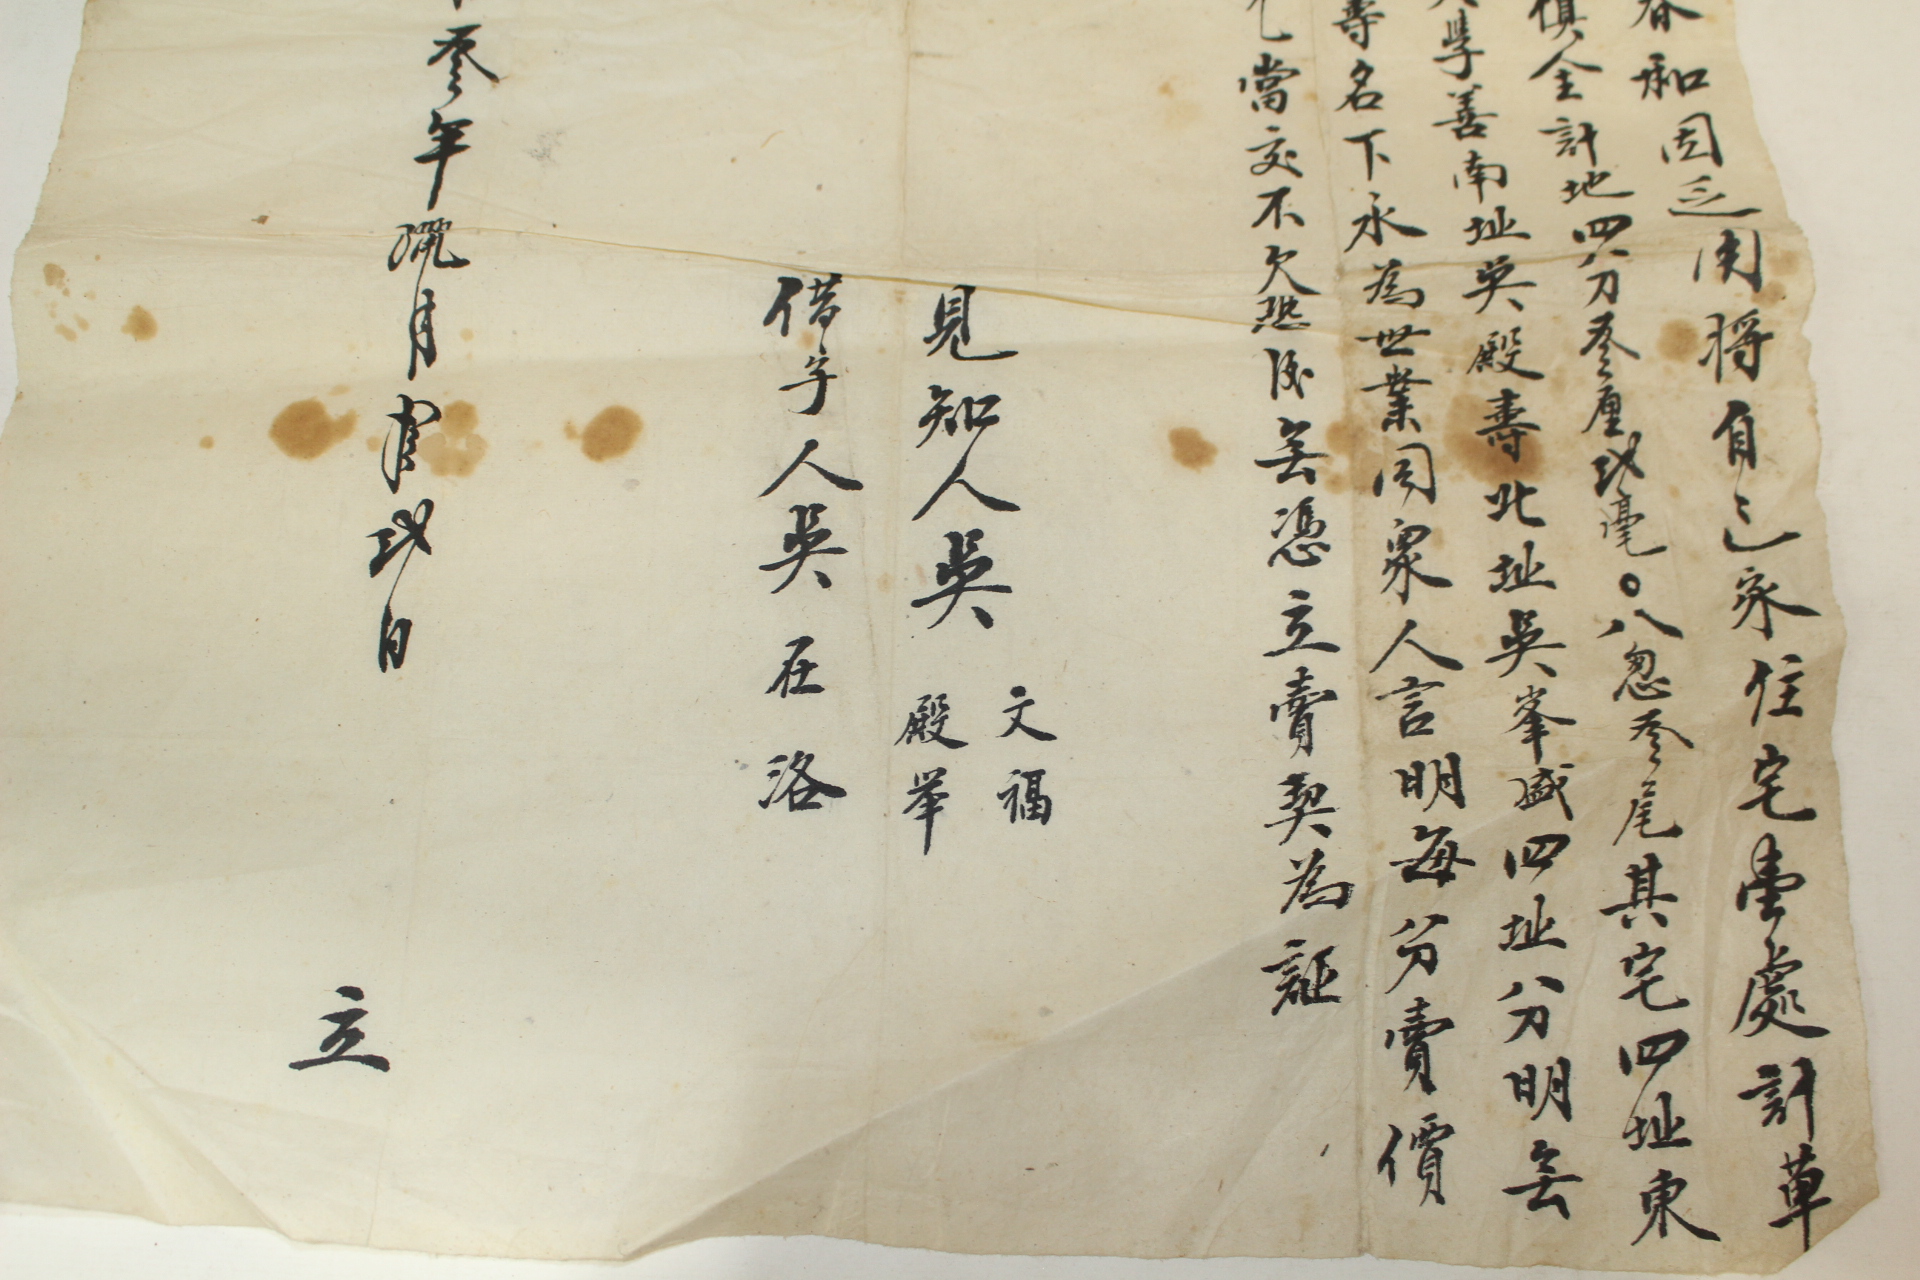 春和因乏用将自己家住宅壹處計草
俱全計地四分叁厘弍毫〇八忽叁尾其宅四址東
學善南址吳殿壽北址吳峯盛四址分明無
壽名下永為世業同衆人言明每分賣價
當交不欠恐後無憑立賣契為証
見知人吳 文福 殿举
借字人吳在洛
叁年臘月初弍日
立